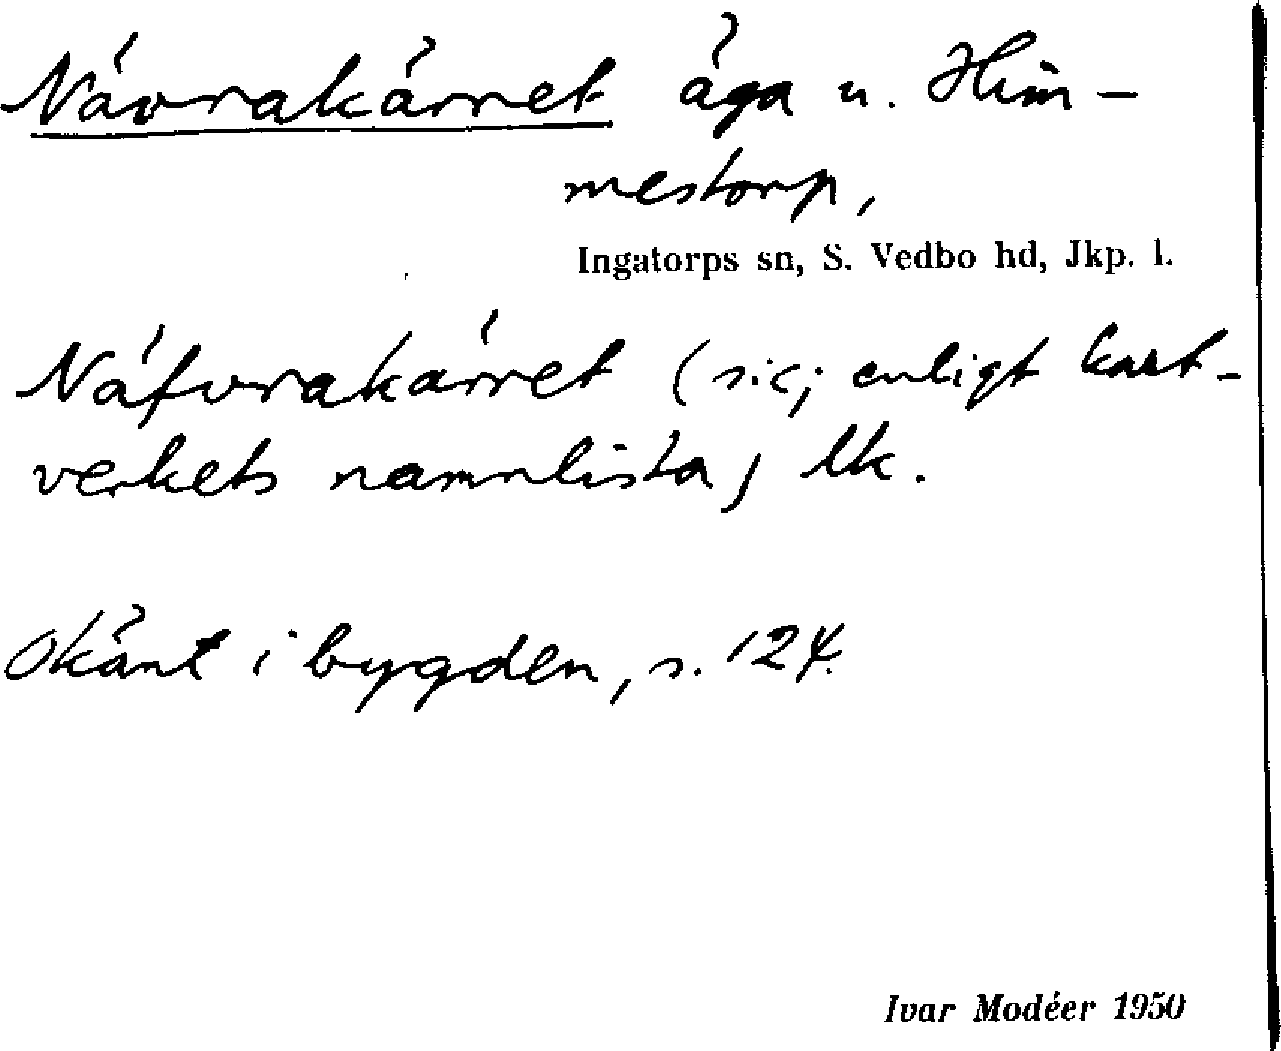 Nävrakärret äga u. Him-
mestorp,
Ingatorps sn, S. Vedbo hd, Jkp. l.
Näfvrakärret (sic; enligt kart-
verkets namnlista) lk.
Okänt i bygden, s. 124.
Ivar Modéer 1950